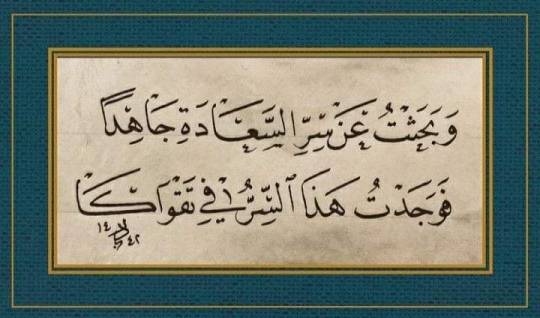 وَبَحَثْتُ عَنْ سِرِّ السَّعَادَةِ جَاهِدًا
فَوَجَدْتُ هَذَا السِّرَّ فِي تَقْوَاكَا